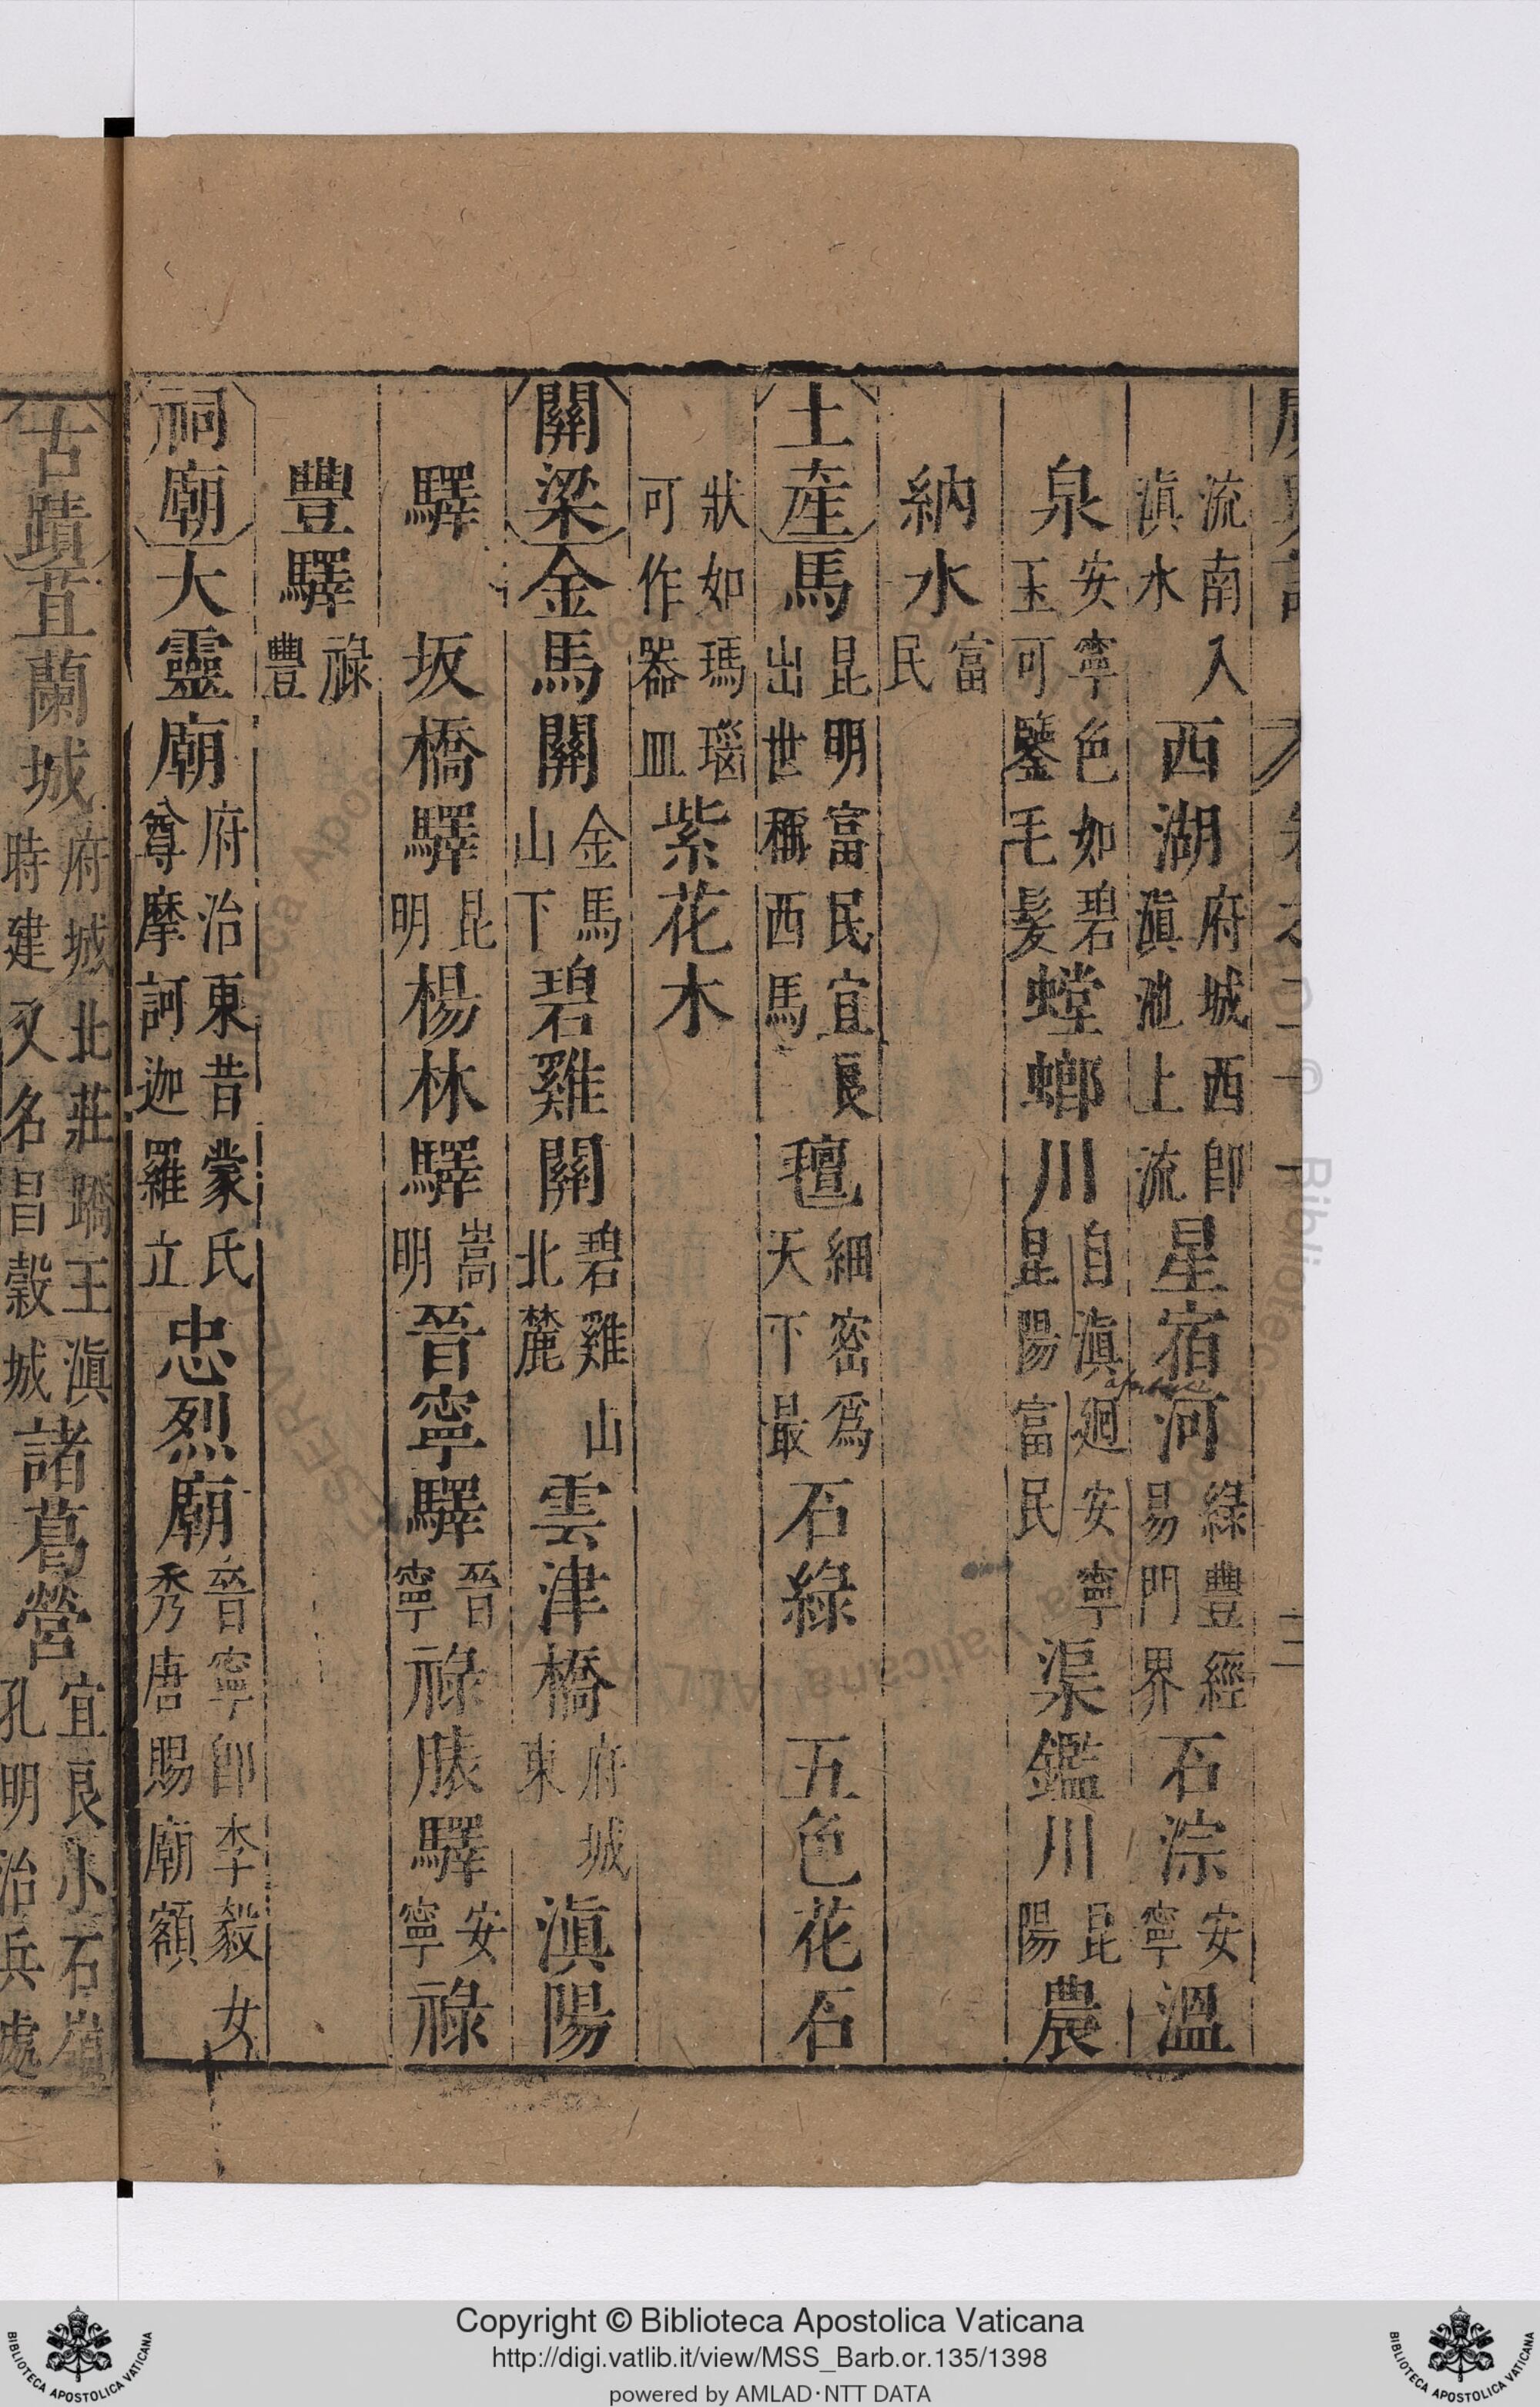 流南入滇水　西湖府城西即滇池上流星宿河綠豐經易門界石淙安寧溫
泉安寧色如碧玉可鑒毛髮螳螂川自滇廻安寧昆陽富民渠鑑川昆陽農
納水富民
土産馬昆明富民宜良出世稱西馬氊細密爲天下最石綠　五色花石
狀如瑪瑙可作器皿紫花木
關梁金馬關金馬山下碧雞關碧雞山北麓雲津橋府城東滇陽
驛　坂橋驛昆明楊林驛嵩明晉寧驛晉寧祿脿驛安寧祿
豐驛祿豐
祠廟大靈廟府治東昔蒙氏尊摩訶迦羅立忠烈廟晉寧卽李毅女秀唐賜廟額
古蹟苴蘭城府城北莊蹻王滇時建又名昌穀城諸葛營宜良小石嶺孔明治兵處
Copyright © Biblioteca Apostolica Vaticana
http://digi.vatlib.it/view/MSS_Barb.or.135/1398
powered by AMLAD·NTT DATA
BIBLIOTECA APOSTOLICA VATICANA
BIBLIOTECA APOSTOLICA VATICANA